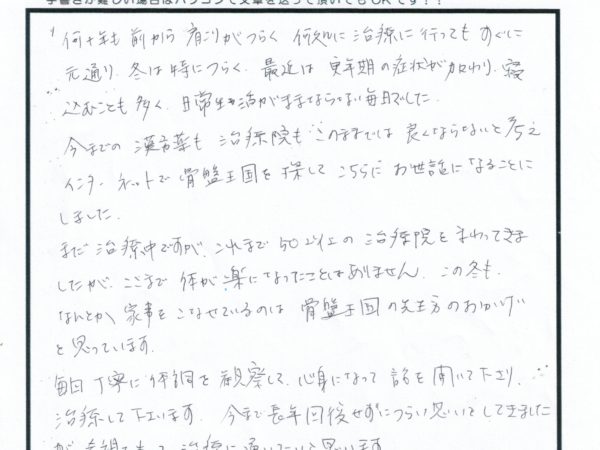 手書きが難しい場合はパソコンで文章を送って頂いてもOKです！！
何十年も前から肩こりがつらく、何処に治療に行ってもすぐに
元通り、冬は特につらく、最近は更年期の症状が加わり、寝
込むことも多く、日常生活がままならない毎日でした。
今までの漢方薬も治療院もこのままでは良くならないと考え
インターネットで骨盤王国を探してこちらにお世話になることに
しました。
まだ治療中ですが、これまで50以上の治療院をまわってきま
したが、ここまで体が楽になったことはありません。この冬も、
なんとか、家事をこなせているのは骨盤王国の先生方のおかげ
と思っています。
毎日丁寧に体調を観察して、心身になって話を聞いて下さり、
治療して下さいます。今まで長年回復せずにつらい思いをしてきました
が、希望をもって治療に通いたいと思います。